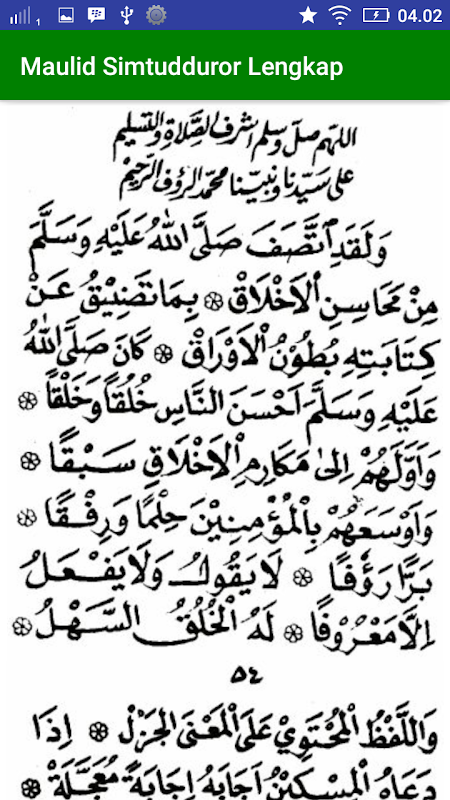 1 04.02
Maulid Simtudduror Lengkap
اللهم صل وسلم اشرف الصلاة والتسليم
على سيدنا ونبينا محمد الرؤف الرحيم
وَلَقَدِ اتَّصَفَ صَلَّى اللهُ عَلَيْهِ وَسَلَّمَ
مِنْ مَحَاسِنِ الْاَخْلَاقِ ۞ بِمَا تَضِيْقُ عَنْ
كِتَابَتِهِ بُطُوْنُ الْاَوْرَاقِ ۞ كَانَ صَلَّى اللهُ
عَلَيْهِ وَسَلَّمَ اَحْسَنَ النَّاسِ خُلُقًا وَخَلْقًا ۞
وَاَوَّلَهُمْ اِلَى مَكَارِمِ الْاَخْلَاقِ سَبْقًا ۞
وَاَوْسَعَهُمْ بِالْمُؤْمِنِيْنَ حِلْمًا وَرِفْقًا ۞
بَرًّا رَؤُفًا ۞ لَا يَقُولُ وَلَا يَفْعَلُ
اِلَّا مَعْرُوْفًا ۞ لَهُ الْخُلُقُ السَّهْلُ ۞
٥٤
وَاللَّفْظُ الْمُحْتَوِيْ عَلَى الْمَعْنَى الْجَزْلِ ۞ اِذَا
دَعَاهُ الْمِسْكِيْنُ اَجَابَهُ اِجَابَةً مُعَجَّلَةً ۞